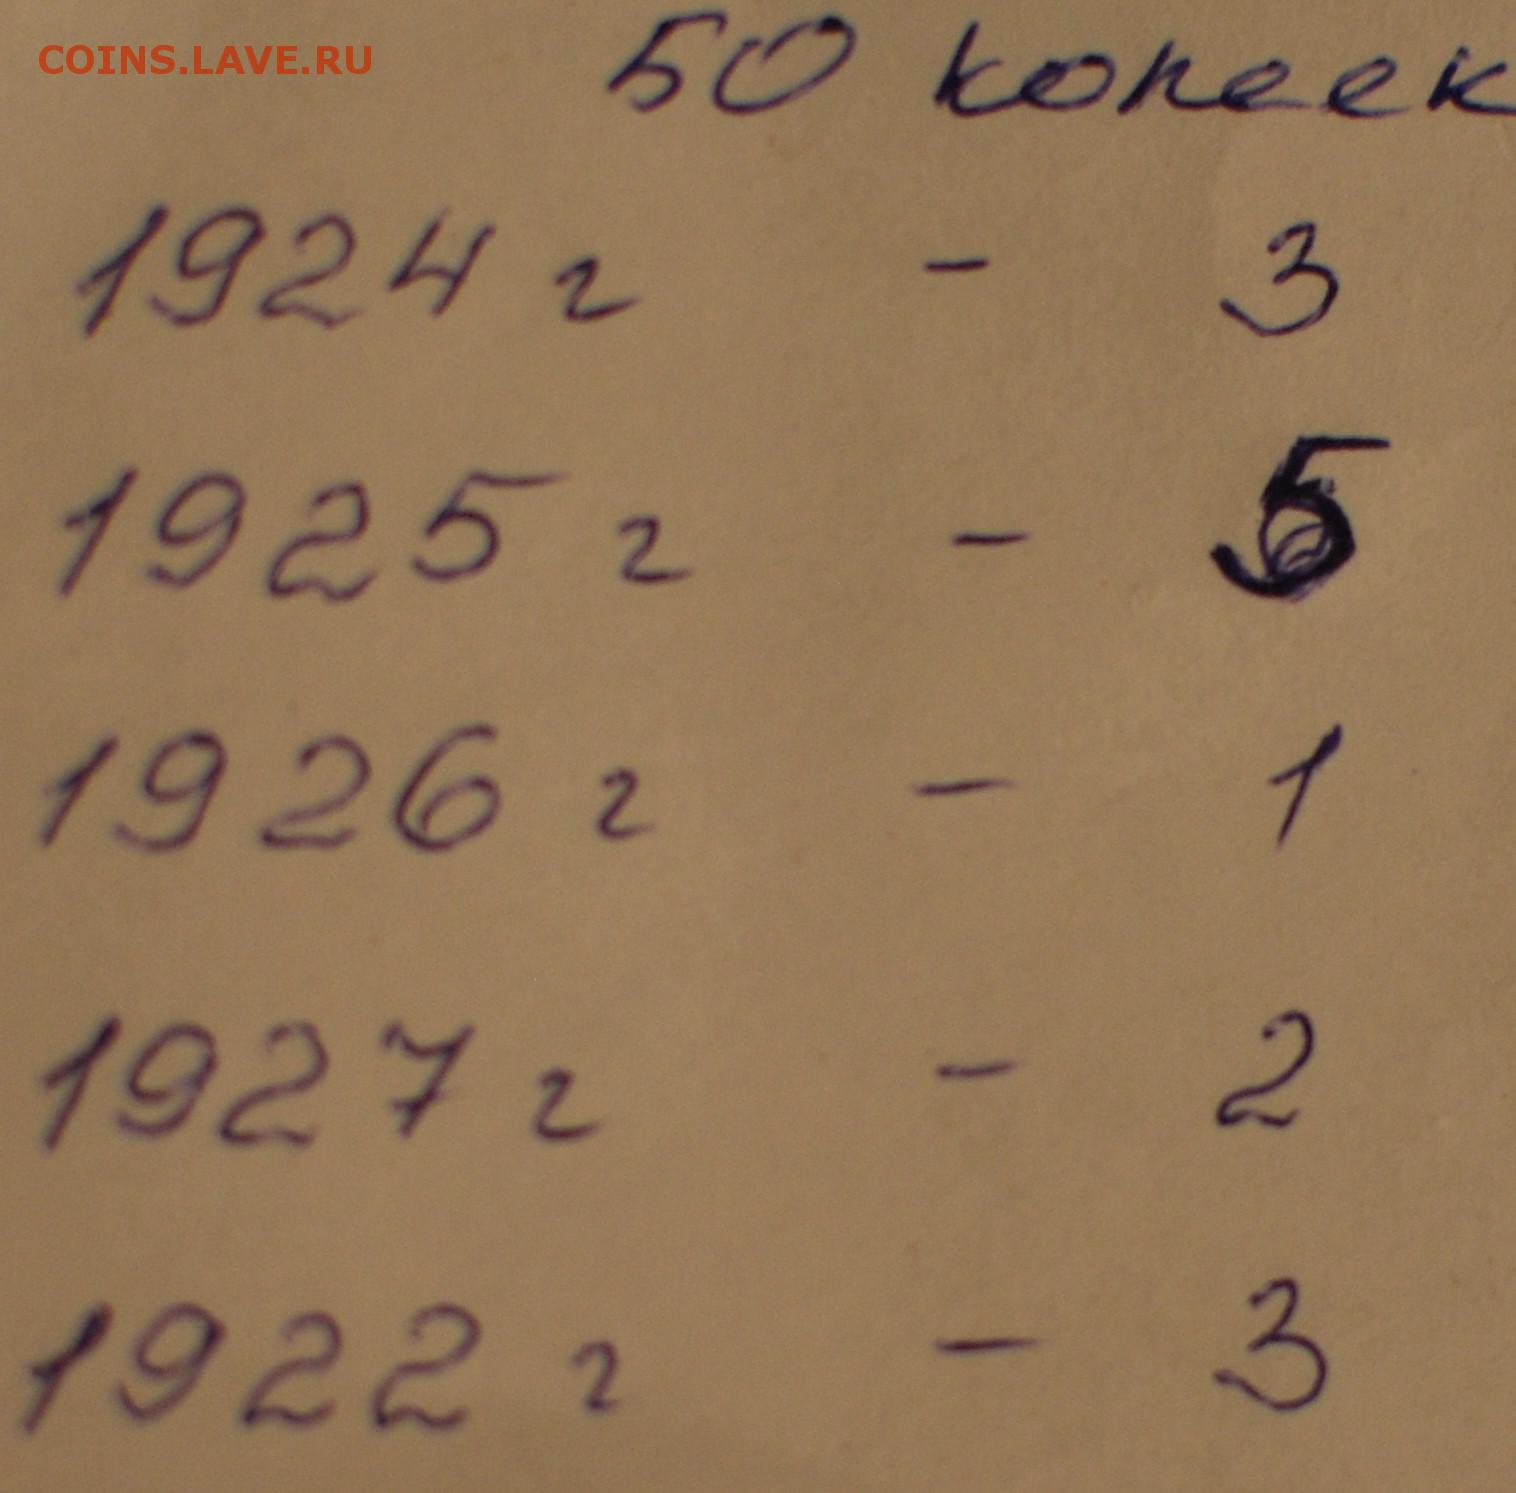 COINS.LAVE.RU
50 копеек
1924 г - 3
1925 г - 5
1926 г - 1
1927 г - 2
1922 г - 3